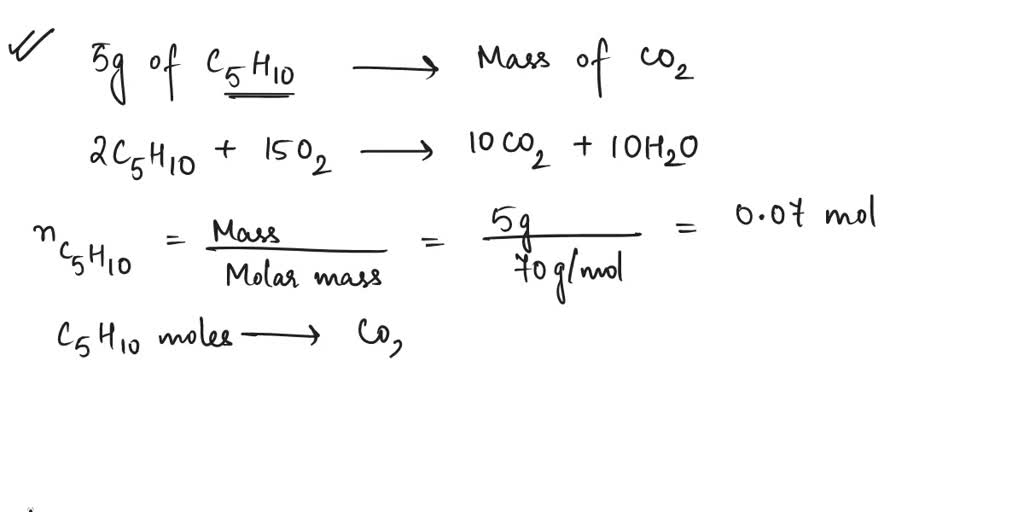 5g of C₅H₁₀ ⟶ Mass of CO₂
2C₅H₁₀ + 15O₂ ⟶ 10CO₂ + 10H₂O
n C₅H₁₀ = Mass / Molar mass = 5g / 70g/mol = 0.07 mol
C₅H₁₀ moles ⟶ CO,